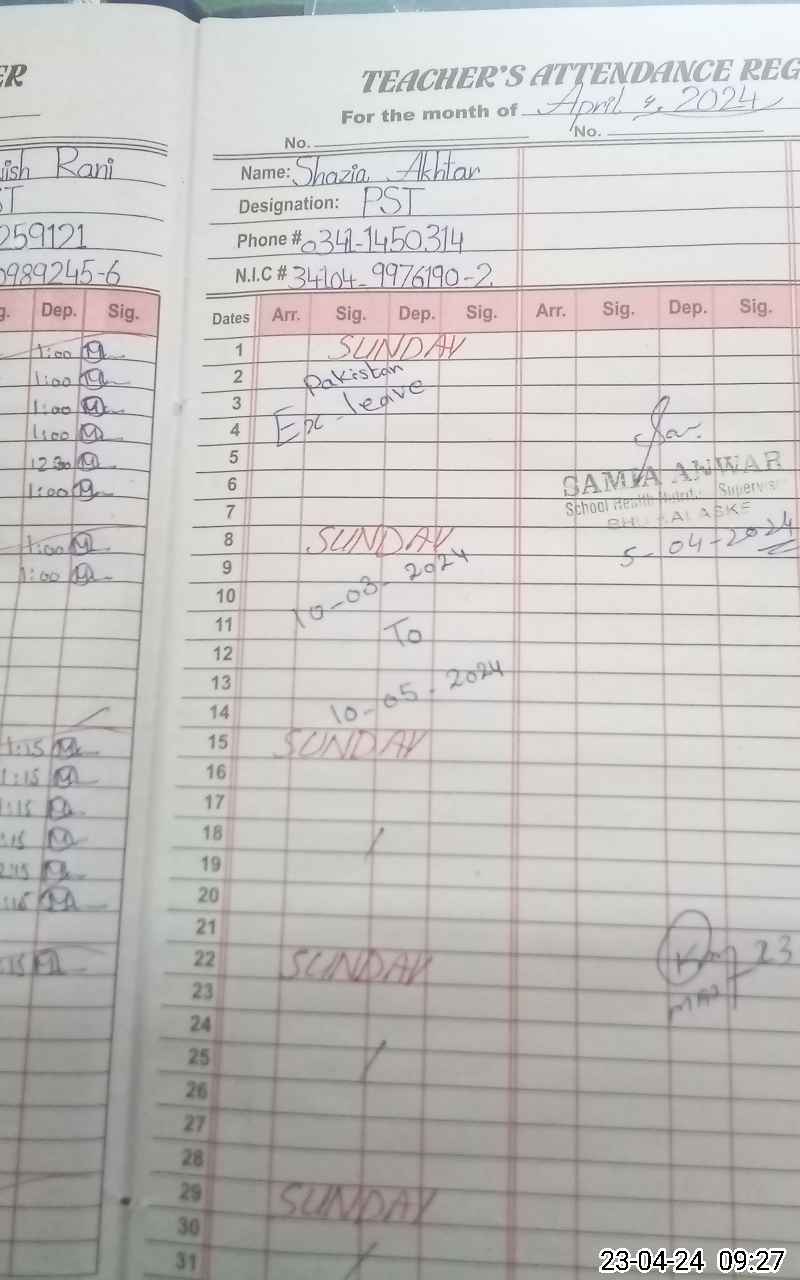 ER
ish Rani
ST
259121
0989245-6
g. Dep. Sig.
1:00
1:00
1:00
1:00
12:30
1:00
1:00
1:00
1:15
1:15
1:15
:15
:15
:15
TEACHER'S ATTENDANCE REG
For the month of April, 2024
No. No.
Name: Shazia Akhtar
Designation: PST
Phone # 0341-1450314
N.I.C # 34104-9976190-2
Dates Arr. Sig. Dep. Sig. Arr. Sig. Dep. Sig.
1 SUNDAY
2 Pakistan
3 Ex leave
4
5
6 SAMIA ANWAR
School Health Nutri. Supervis
7
8 SUNDAY
5-04-2024
9 10-03-2024
10
11 To
12
13 10-05-2024
14
15 SUNDAY
16
17
18
19
20
21
22 SUNDAY 23
23
24
25
26
27
28
29 SUNDAY
30
31
23-04-24 09:27